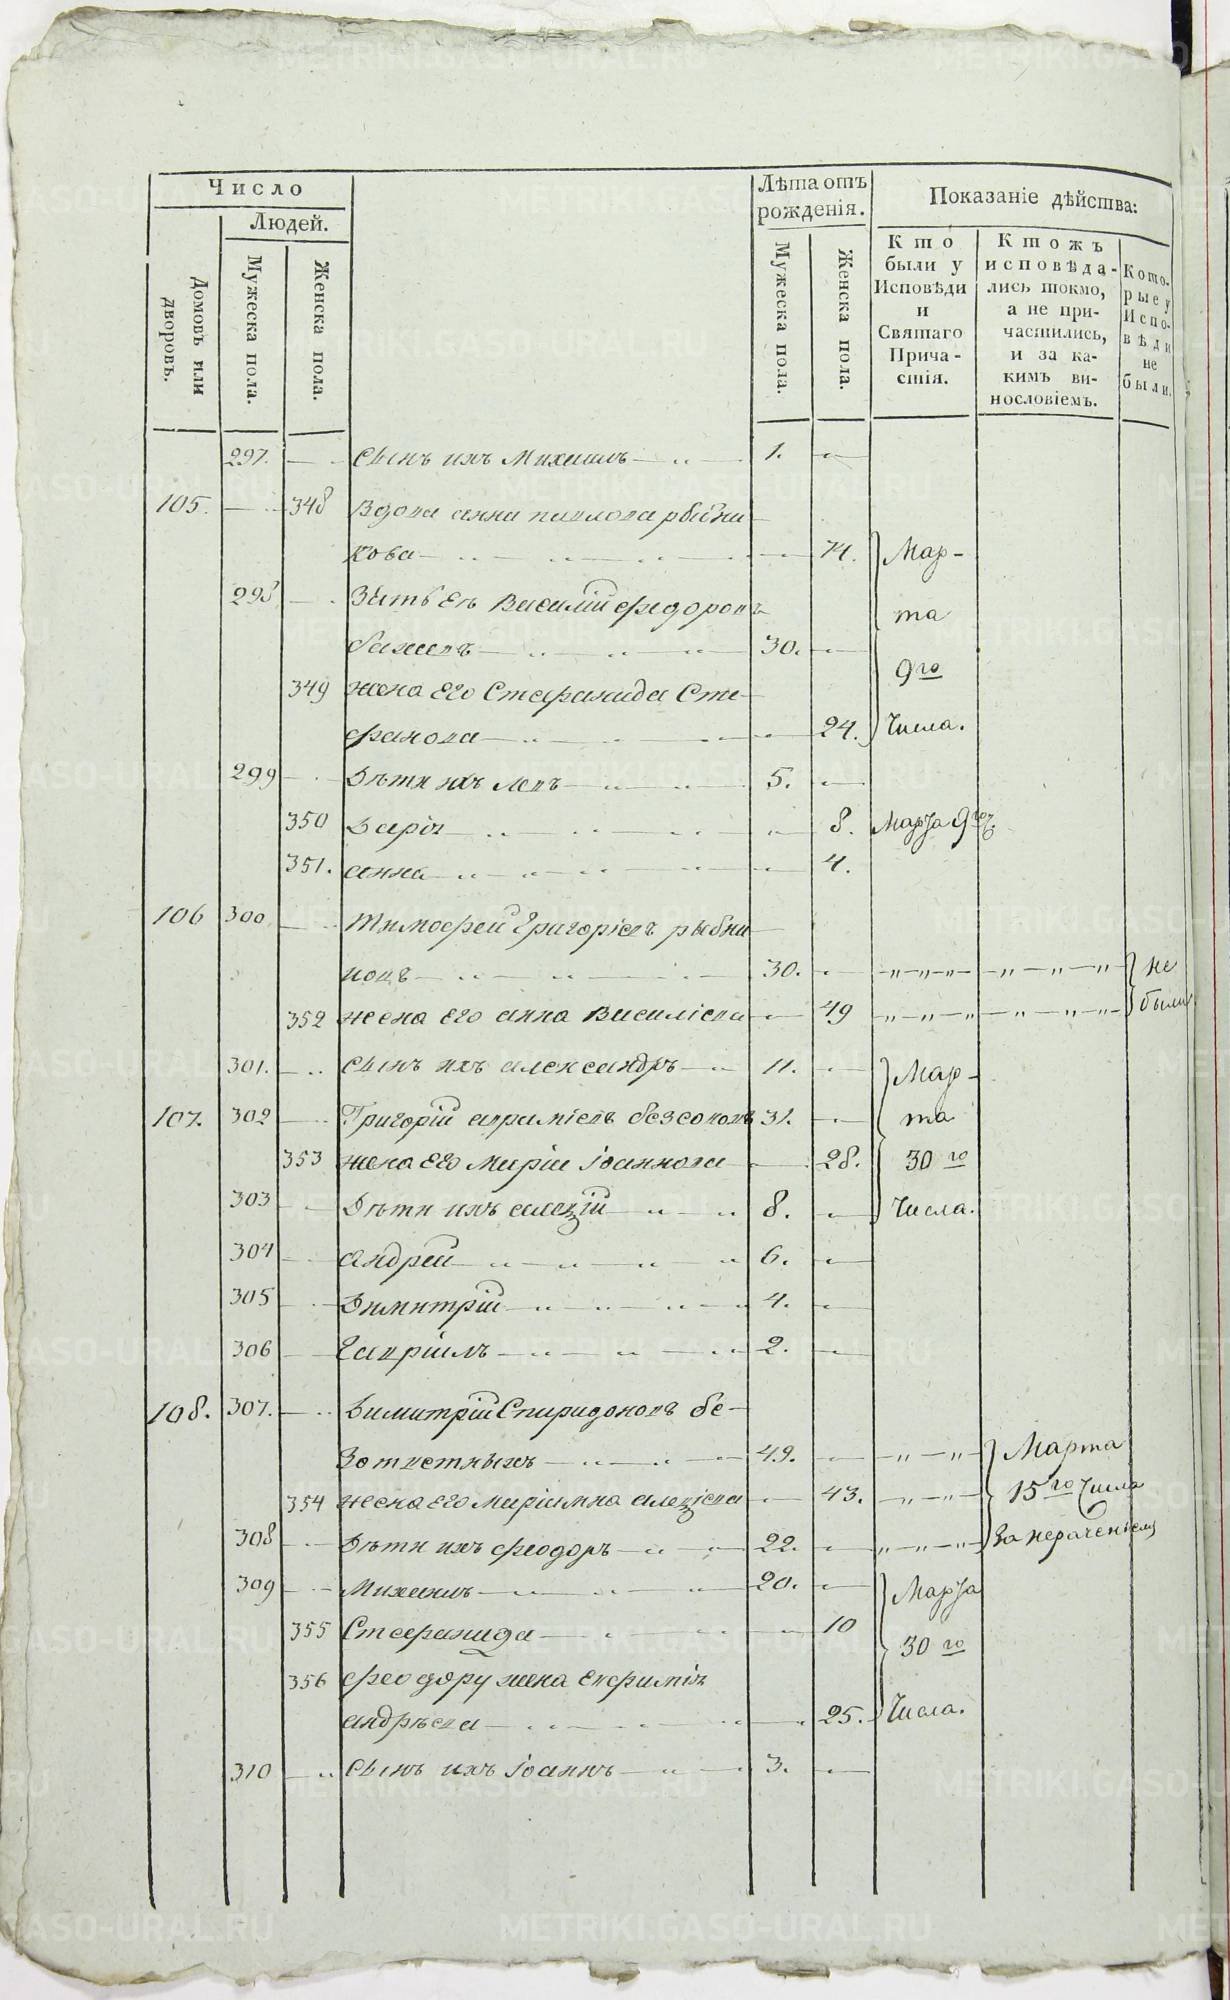 Число
Людей.
Домовъ или дворовъ.
Мужеска пола.
Женска пола.
Лѣта отъ рожденія.
Мужеска пола.
Женска пола.
Показаніе дѣйства:
Кто были у Исповѣди и Святаго Причастія.
Ктожъ исповѣдались токмо, а не причастились, и за какимъ винословіемъ.
Которые у Исповѣди не были.
297. сынъ ихъ Михаилъ 1.
105. 348 Вдова анна павлова рыбни
кова 74. Мар-
298 Зять Ея Василій федоровъ та
бажевъ 30. 9го
349 жена Его Стефанида Сте-
фанова 24. Числа.
299 Дѣти ихъ Левъ 5.
350 Дарія 8. Марта 9го ч
351. анна 4.
106 300 Тимофей Григоріевъ рыбни
ковъ 30. не
352 жена Его анна Василіева 49 были
301. сынъ ихъ александръ 11. Мар-
107. 302 Григорій авраміевъ безсоновъ 31. та
353 жена Его Марія Іоаннова 28. 30го
303 Дѣти ихъ алеѯій 8. Числа.
304 андрей 6.
305 Димитрій 4.
306 Гавріилъ 2.
108. 307. Димитрій Спиридоновъ бе-
зотвѣтныхъ 49. Марта
354 жена Его Маріамна алеѯіева 43. 15го Числа
308 Дѣти ихъ феодоръ 22. За нераченіемъ
309 Михаилъ 20. Марта
355 Стефанида 10 30го
356 феодору жена Евфимія
андрѣева 25. Числа.
310 сынъ ихъ Іоаннъ 3.
METRIKI.GASO-URAL.RU